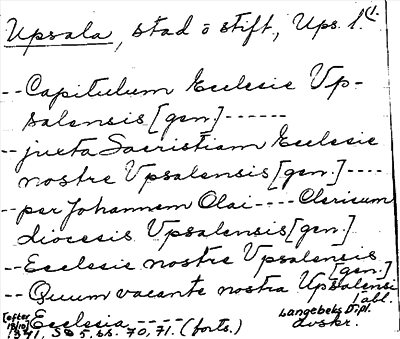 Upsala, stad o stift, Ups. l. (1.
--Capitulum Ecclesie Vp-
salensis [gen.]------
--juxta Sacristiam Ecclesie
nostre Vpsalensis [gen.]----
--per Johannem Olai----Clericum
diocesis Vpsalensis [gen.]
--Ecclesie nostre Vpsalensis
[gen.]
--Quum vacante nostra Upsalensi
[abl.
Ecclesia----
[efter 19/10] 1341, SD 5, ss. 70, 71. (forts.)
Langebeks Dipl.
avskr.